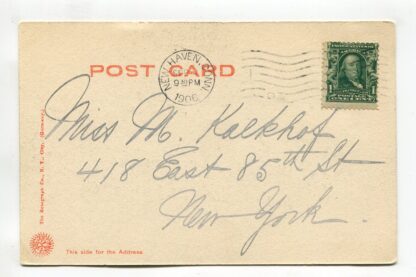 POST CARD
NEW HAVEN, CONN.
9 PM
1906
Miss M. Kalkhof
418 East 85th St
New York.
The Rotograph Co., N. Y. City. (Germany)
This side for the Address.